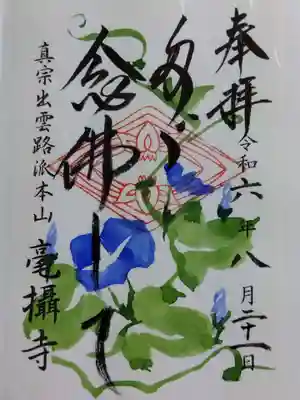 奉拝
令和六年八月二十一日
念佛して
真宗出雲路派本山
毫攝寺